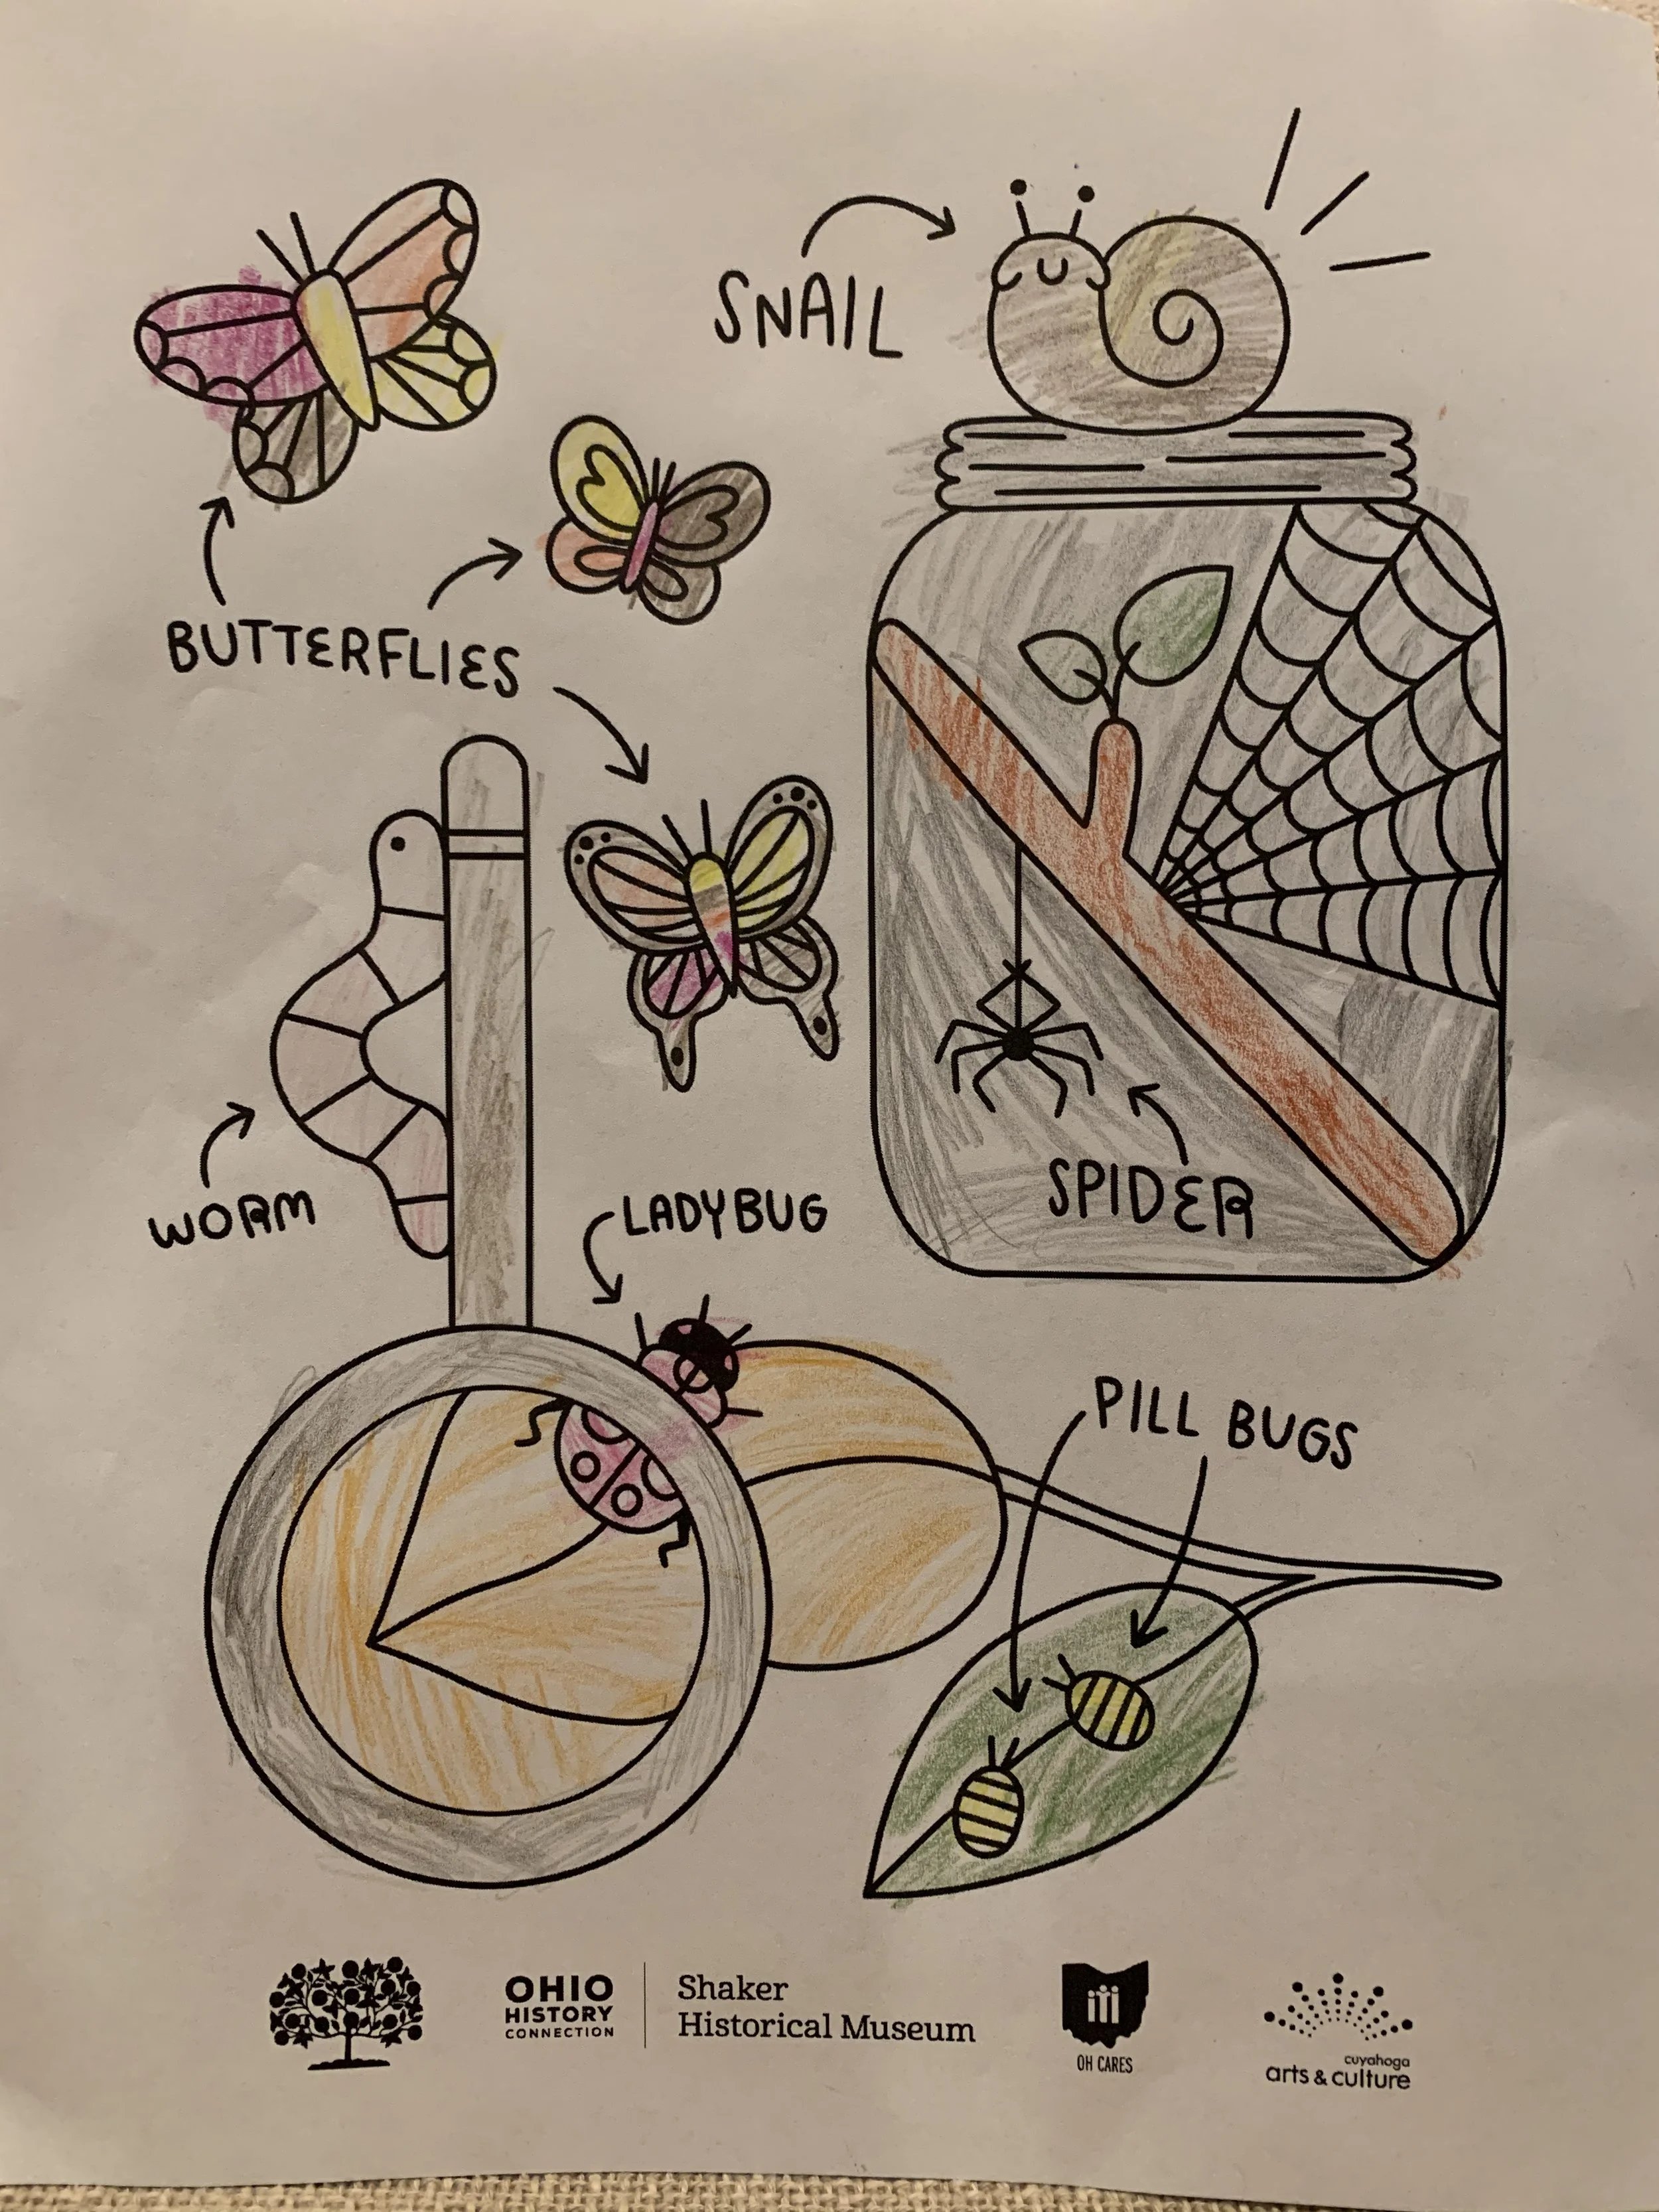 SNAIL
BUTTERFLIES
WORM
LADYBUG
SPIDER
PILL BUGS
OHIO
HISTORY
CONNECTION
Shaker
Historical Museum
OH CARES
cuyahoga
arts & culture